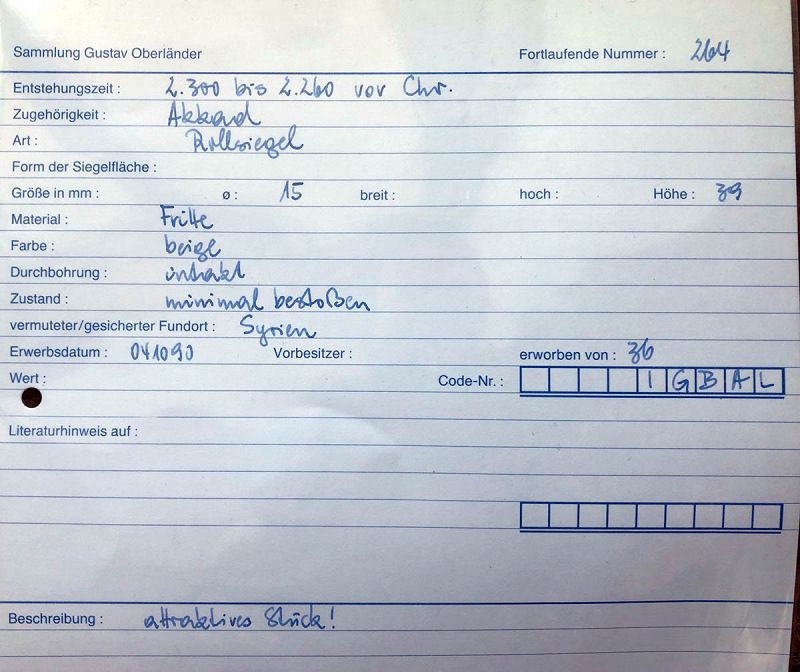 Sammlung Gustav Oberländer Fortlaufende Nummer : 264
Entstehungszeit : 2.300 bis 2.260 vor Chr.
Zugehörigkeit : Akkad
Art : Rollsiegel
Form der Siegelfläche :
Größe in mm : ø : 15 breit : hoch : Höhe : 39
Material : Fritte
Farbe : beige
Durchbohrung : intakt
Zustand : minimal bestoßen
vermuteter/gesicherter Fundort : Syrien
Erwerbsdatum : 041090 Vorbesitzer : erworben von : 36
Wert : Code-Nr. : I G B A L
Literaturhinweis auf :
Beschreibung : attraktives Stück!